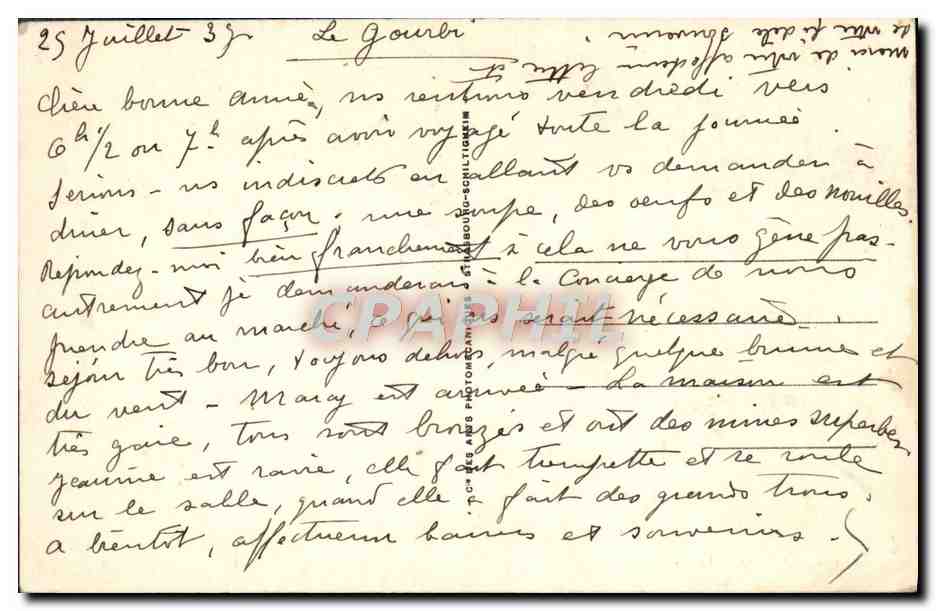 25 Juillet 39 Le Gourbi
Chère bonne amie, ns rentrons vendredi vers
6h 1/2 ou 7h après avoir voyagé toute la journée
Serions-ns indiscrets en allant vs demander à
dîner, sans façon. une soupe, des oeufs et des nouilles.
Répondez-moi bien franchement si cela ne vous gêne pas-
autrement je demanderais à la Concierge de nous
prendre au marché, ce qui ns serait nécessaire.
séjour très bon, toujours dehors, malgré quelque brume et
du vent - Maray est arrivée - La maison est
très gaie, tous sont bronzés et ont des mines superbes
Jeannine est ravie, elle fait trempette et se roule
sur le sable, quand elle a fait des grands trous.
a bientôt, affectueux baisers et souvenirs.
merci de votre affectueuse lettre et
de votre fidèle souvenir.
Cie DES ARTS PHOTOMECANIQUES STRASBOURG-SCHILTIGHEIM
CPARAMA